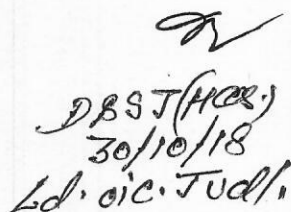 DBSJ(HQs.)
30/10/18
Ld. oic. Judl.